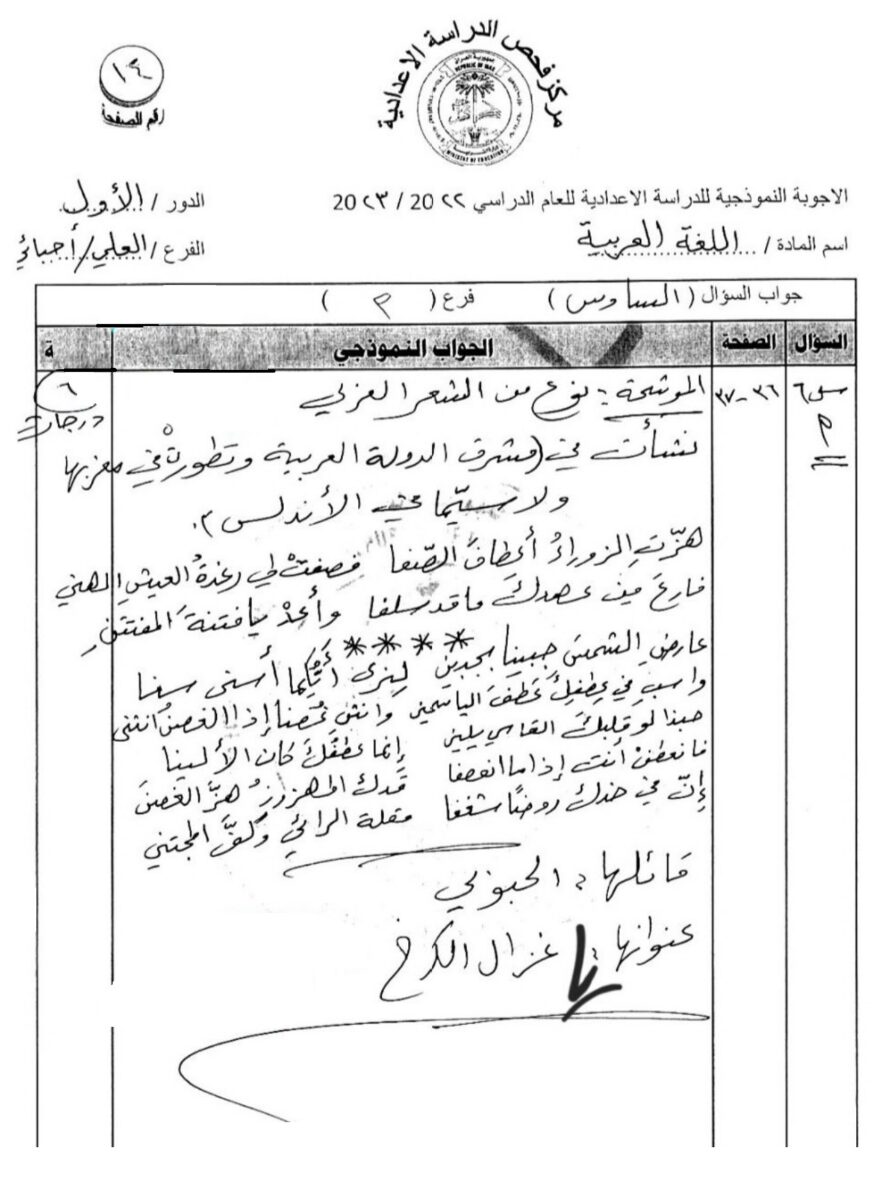 مركز فحص الدراسة الاعدادية
جمهورية العراق
REPUBLIC OF IRAQ
MINISTRY OF EDUCATION
١٤
رقم الصفحة
الاجوبة النموذجية للدراسة الاعدادية للعام الدراسي ٢٠٢٢ / ٢٠٢٣
الدور / الأول
اسم المادة / اللغة العربية
الفرع / العلمي / أحيائي
جواب السؤال ( السادس ) فرع ( م )
السؤال الصفحة الجواب النموذجي ة
س٦ ٣٦-٣٧ الموشحة : نوع من الشعر العربي ٦ درجات
م
نشأت في (مشرق الدولة العربية وتطورت في مغربها
ولا سيّما في الأندلس).
هزّتِ الزوراءُ أعطافَ الصّفا فصفتْ لي رغدةُ العيشِ الهني
فارعَ من عهدكَ ما قد سلفا وأعدْ يا فتنةَ المفتتنِ
****
عارضِ الشمسَ جبينا بجبين لِنرى أيّكما أسنى سنا
واسبِ في عِطفِكَ عَطفَ الياسمين وانثنِ غصناً إذا الغصنُ انثنى
حبذا لو قلبكَ القاسي يلين إنما عطفُكَ كان الألينا
فانعطفْ أنت إذا ما انعطفا قدك المهزوزُ هزَّ الغصنَ
إنّ في خدك روضاً شغفا مقلة الرائي وكفَّ المجتني
قائلها : الحبوبي
عنوانها : يا غزال الكرخ